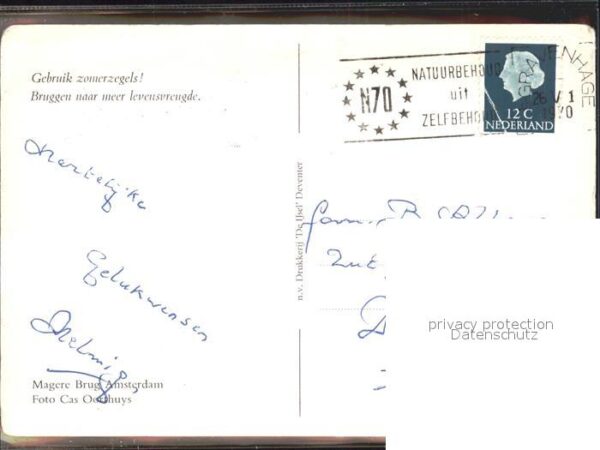 Gebruik zomerzegels!
Bruggen naar meer levensvreugde.
Hartelijke
Gelukwensen
Magere Brug Amsterdam
Foto Cas Oorthuys
n.v. Drukkerij 'De IJsel' Deventer
N70
NATUURBEHOUD
uit
ZELFBEHOUD
GRAVENHAGE
1970
12 C
NEDERLAND
privacy protection
Datenschutz